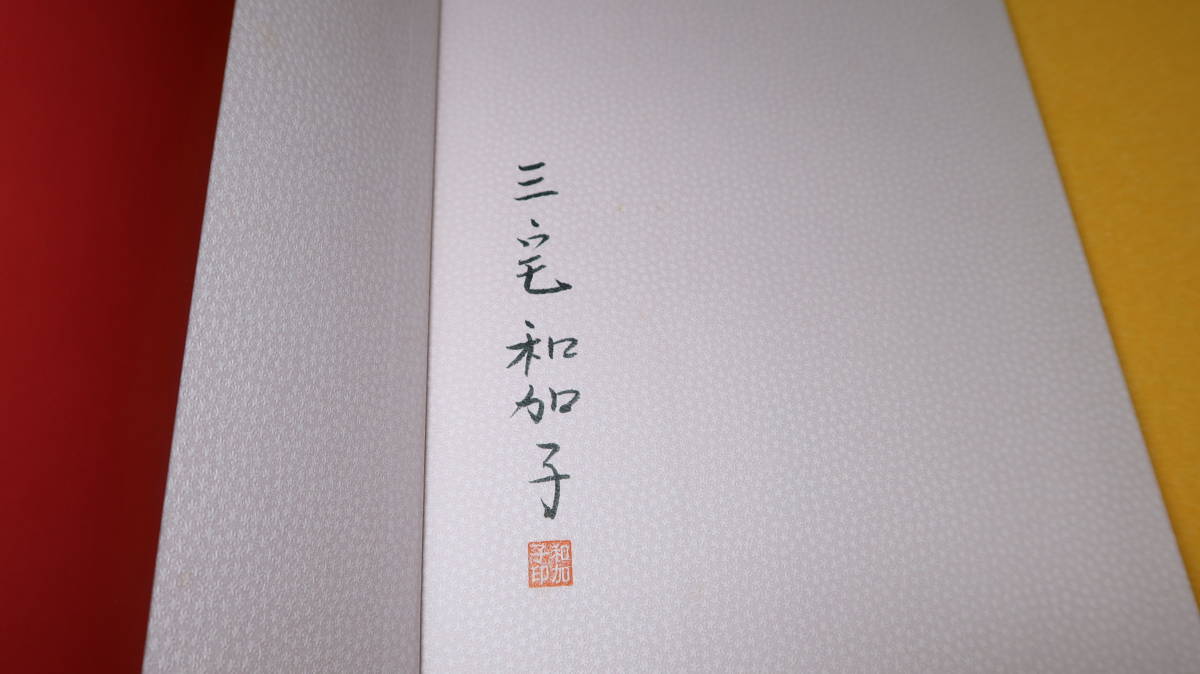 三宅和加子
和加
子印